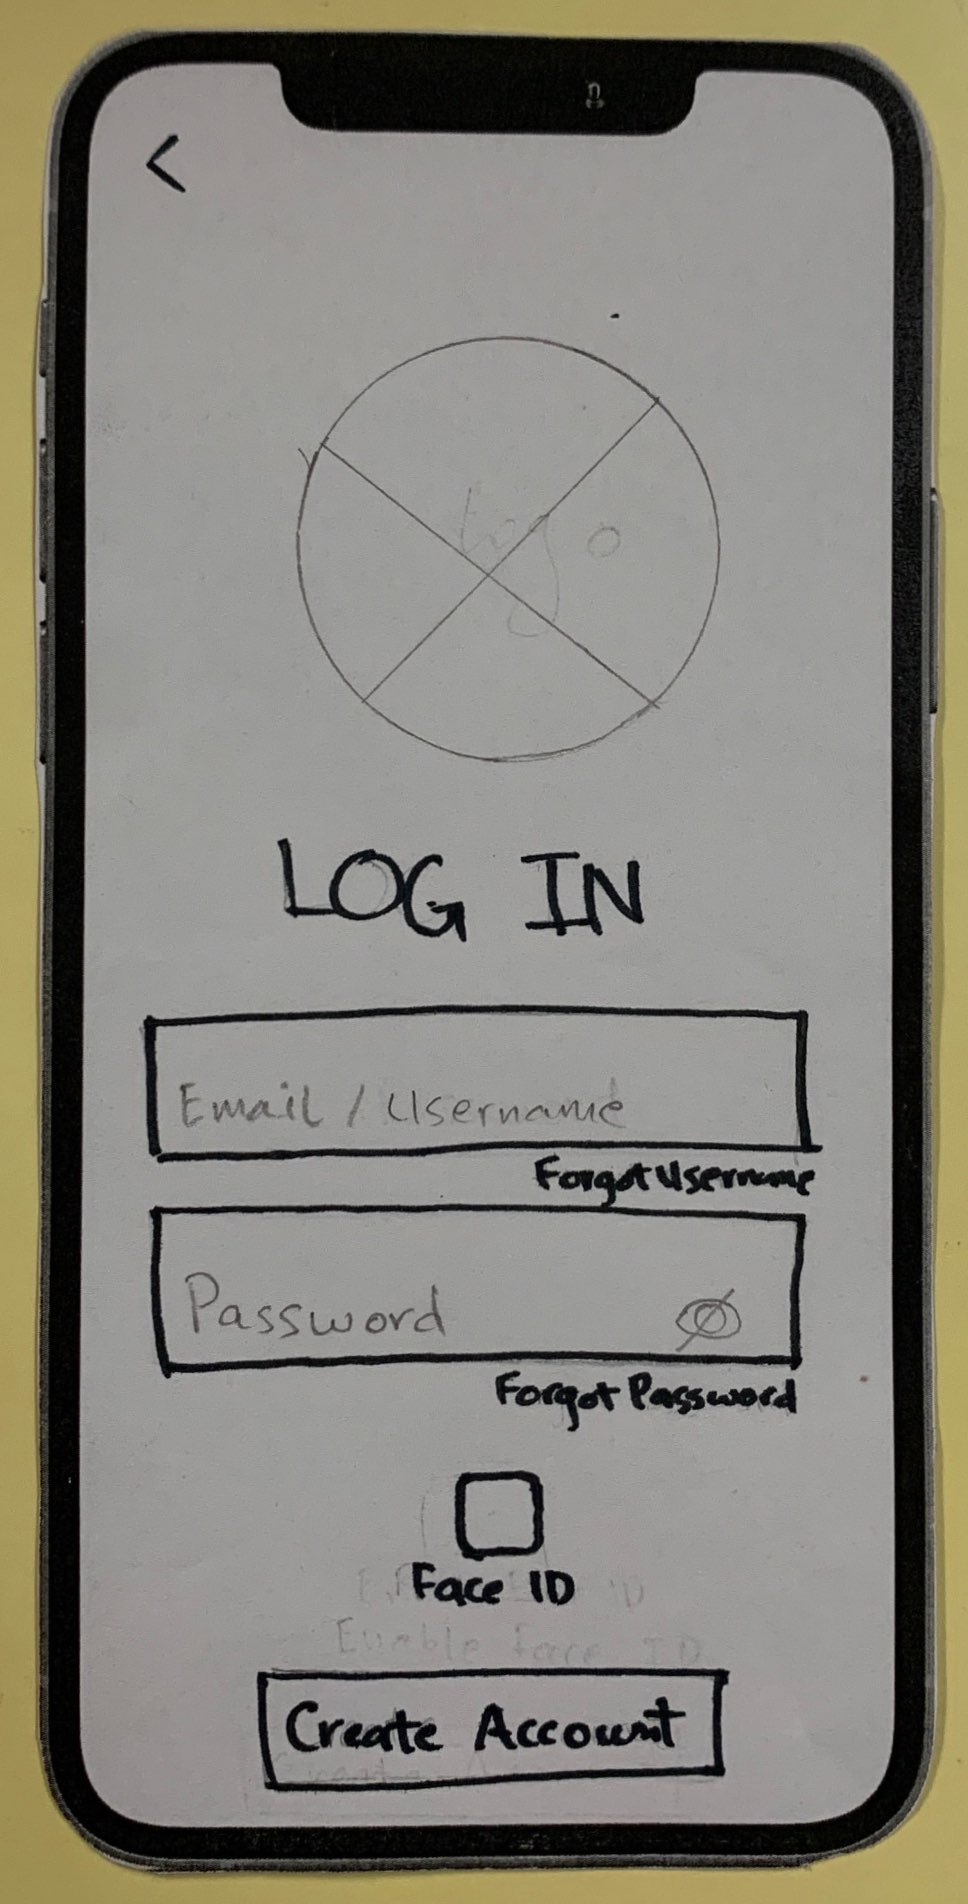 <
Logo
LOG IN
Email / Username
Forgot Username
Password
Forgot Password
Face ID
Enable Face ID
Create Account